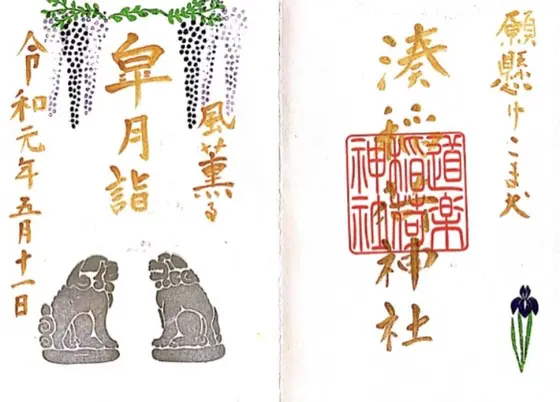 願懸けこま犬
湊稲荷神社
道楽
稲荷
神社
風薫る
皐月詣
令和元年五月十一日